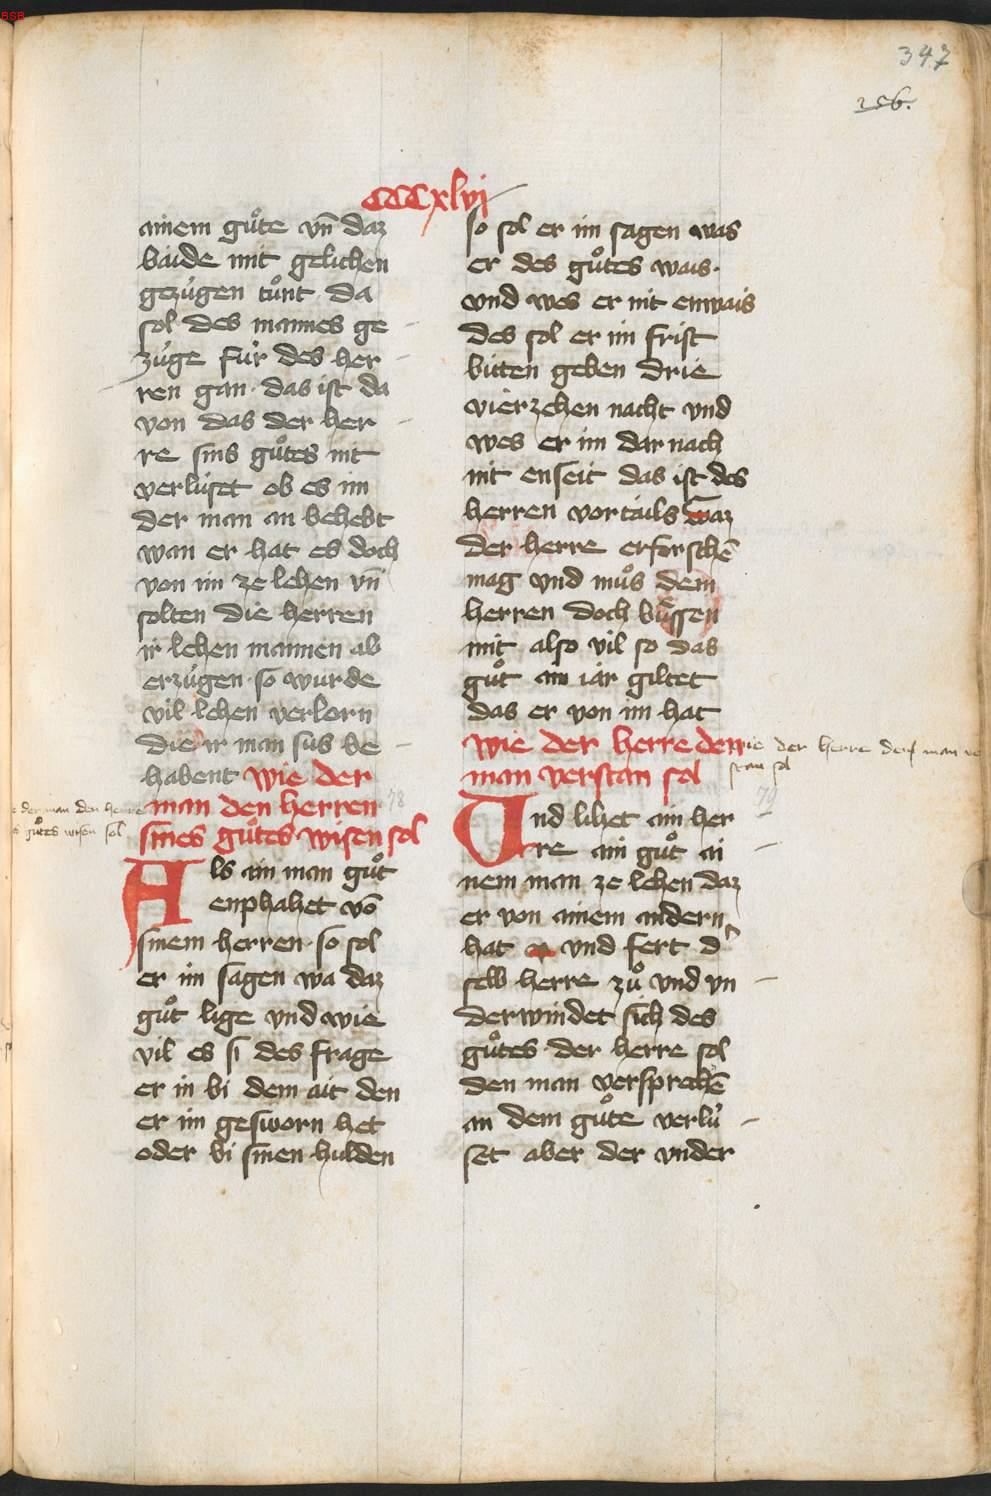 BSB
347
256.
CCCxlvj
ainem guͦte vn̄ daz
baide mit gelichen
gezúgen tuͦnt da
sol des mannes ge
zúge fúr des her
ren gan · das ist da
von das der her
re sins guͦtes nit
verlúset ob es im
der man an behebt
wan er hat es doch
von im ze lehen vn̄
solten die herren
ir lehen mannen ab
erzúgen · so wurde
vil lehen verlorn
die ir man sus be
habent wie der
man den herren
sines guͦtes wisen sol
Als ain man guͦt
enphahet vō
sinem herren · so sol
er im sagen wa daz
guͦt lige vnd wie
vil es si des frage
er in bi dem ait den
er im gesworn het
oder bi sinen hulden
so sol er im sagen was
er des guͦtes wais ·
vnd wes er nit enwais
des sol er im frist
bitten geben drie
vierzehen nacht vnd
wes er im dar nach
nit enseit das ist des
herren vortails waz
der herre erforschē
mag vnd muͦs dem
herren doch buͤssen
mit also vil so das
guͦt ain iar giltet
das er von im hat
wie der herre den
man verstan sol
Und lihet ain her
re ain guͦt ai
nem man ze lehen daz
er von ainem andern
hat vnd fert d͛
selb herre zuͦ vnd vn
derwindet sich des
guͦtes · der herre sol
den man versprechē
an dem guͦte verlú
set aber der vnder
der man den herre
guͦtes wisen sol
78
wie der herre den man ve
stan sol
79